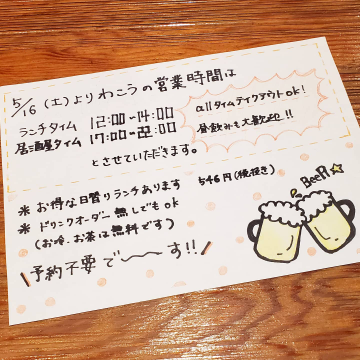 5/16(土)よりわこうの営業時間は
ランチタイム 12:00~14:00
居酒屋タイム 17:00~22:00
とさせていただきます。
allタイムテイクアウトok!
昼飲みも大歓迎!!
※ お得な日替りランチあります 546円(税抜き)
※ ドリンクオーダー無しでもok
(お冷・お茶は無料です)
予約不要で〜〜す!!
BeeR